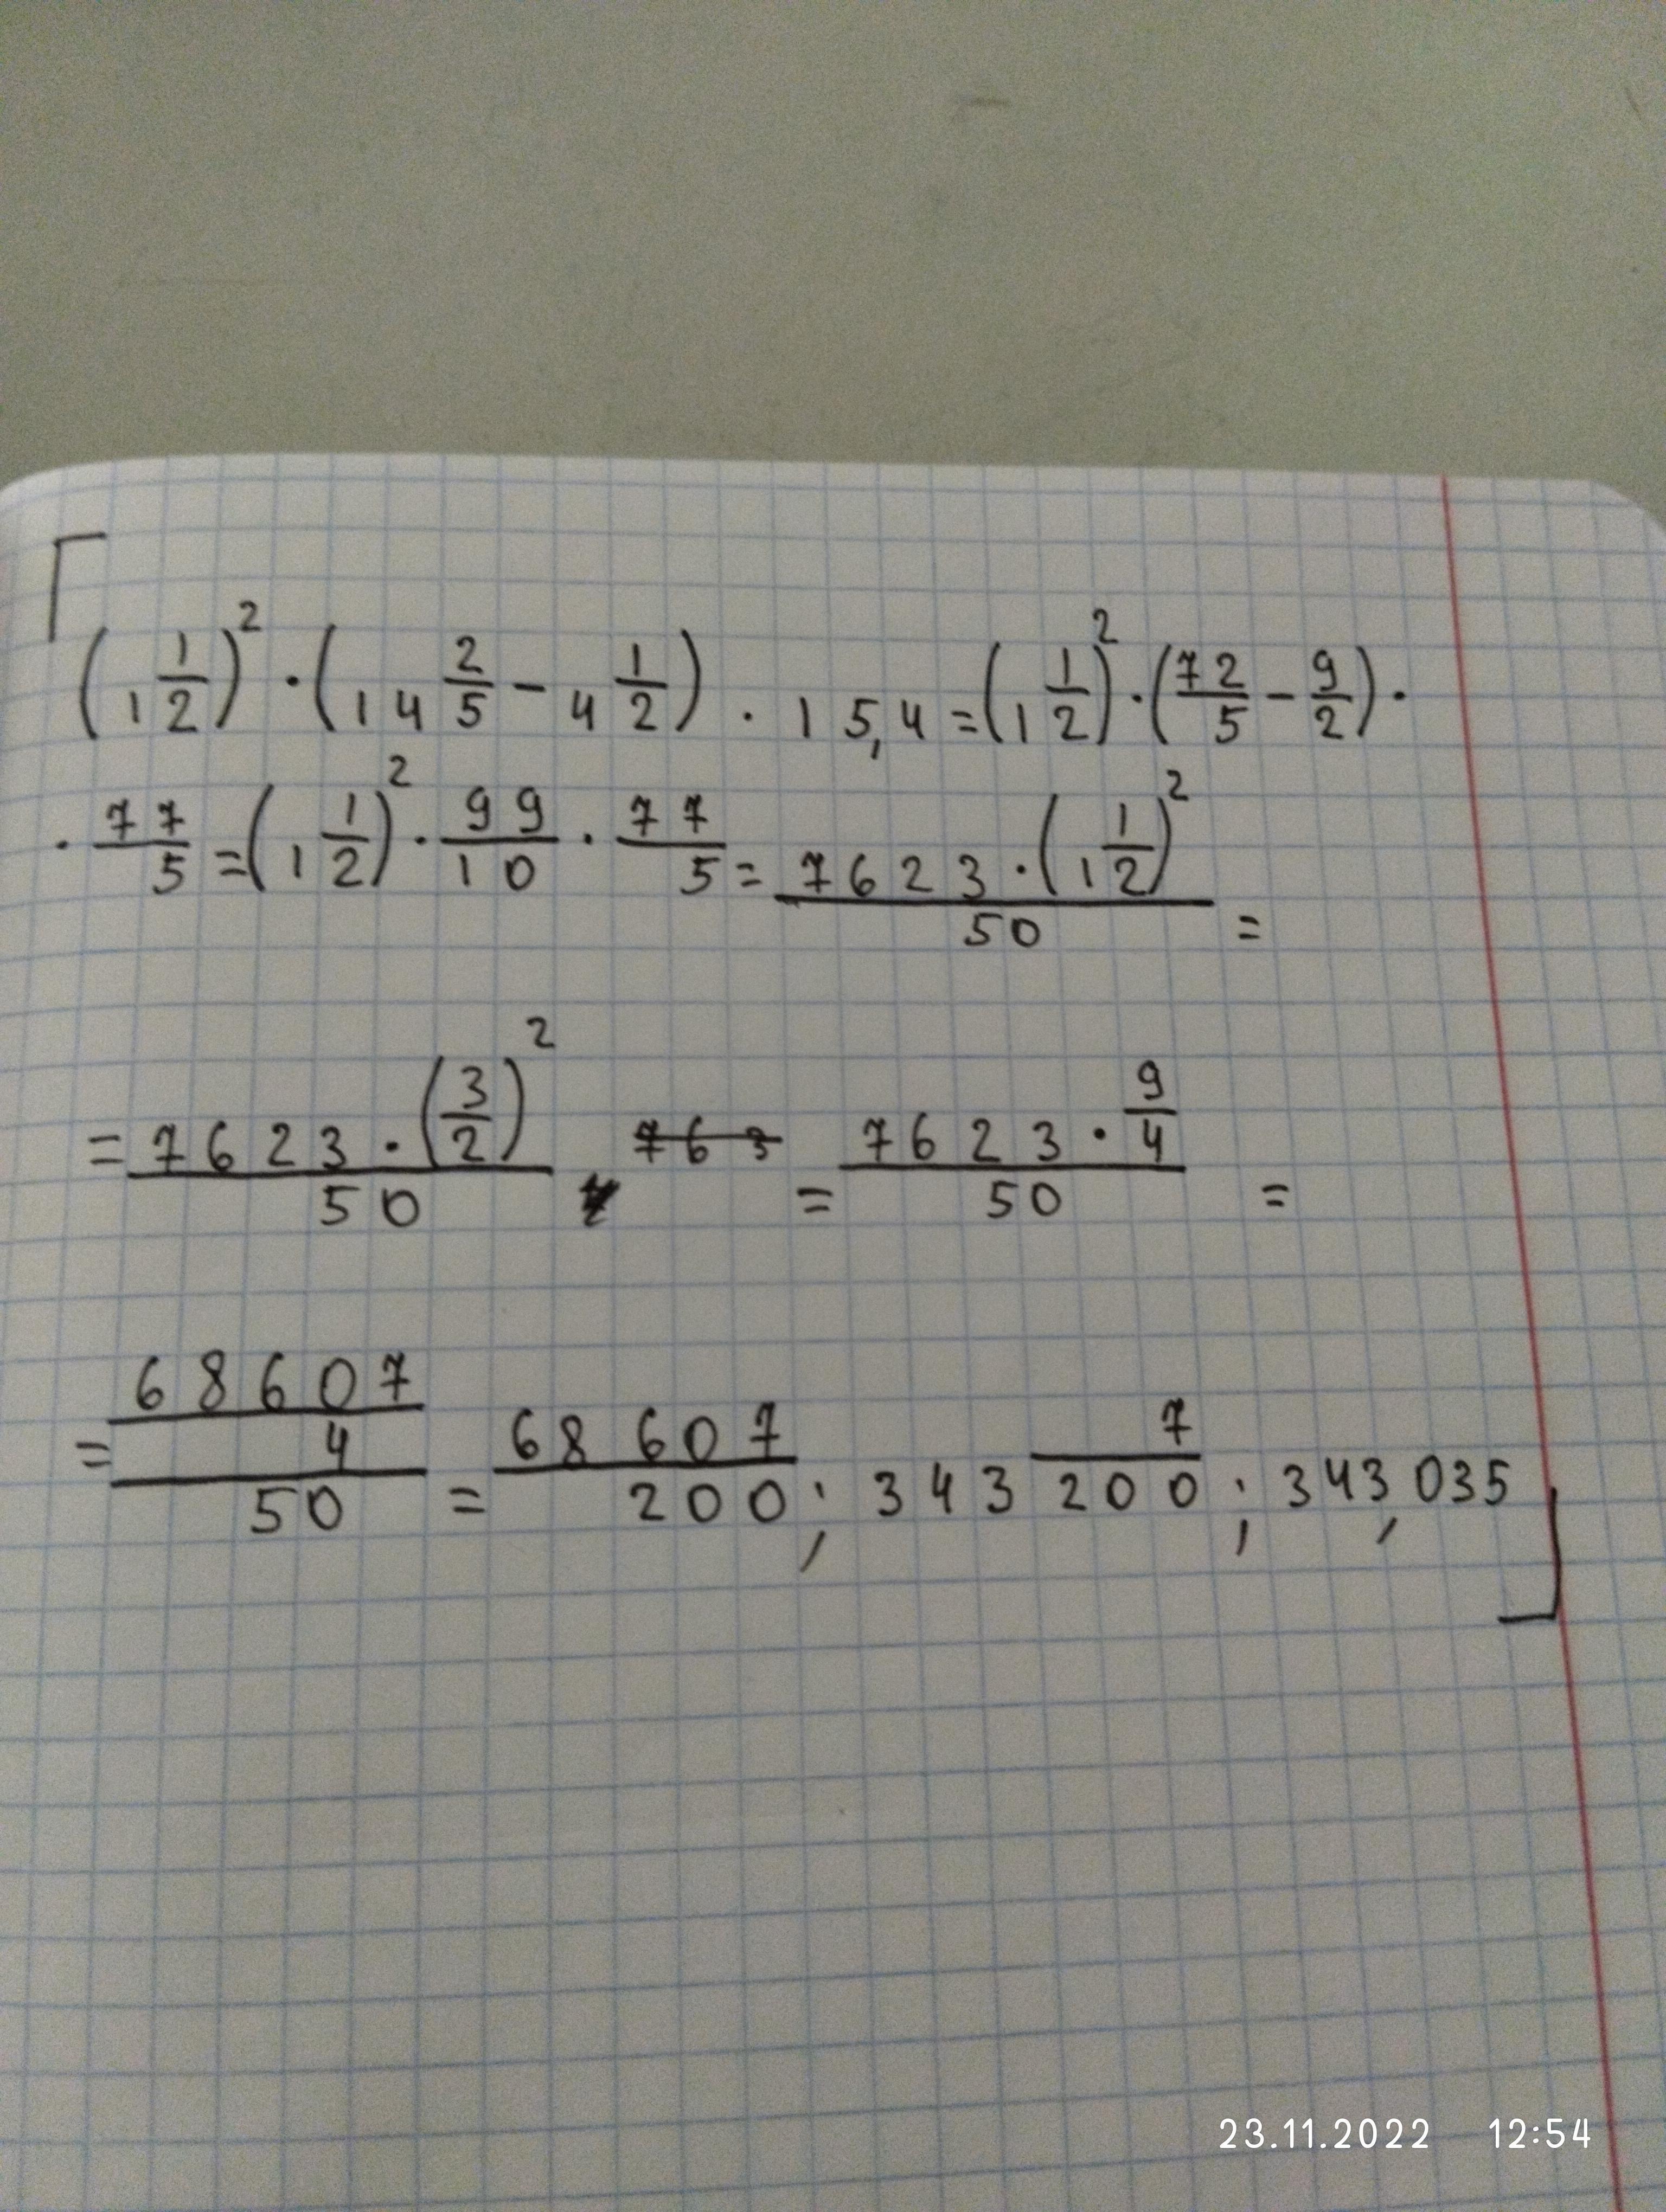 (1 1/2)² · (14 2/5 − 4 1/2) · 15,4 = (1 1/2)² · (72/5 − 9/2) ·
· 77/5 = (1 1/2)² · 99/10 · 77/5 = (7623 · (1 1/2)²)/50 =
= (7623 · (3/2)²)/50 763 = (7623 · 9/4)/50 =
= (68607/4)/50 = 68607/200; 343 7/200; 343,035
23.11.2022 12:54